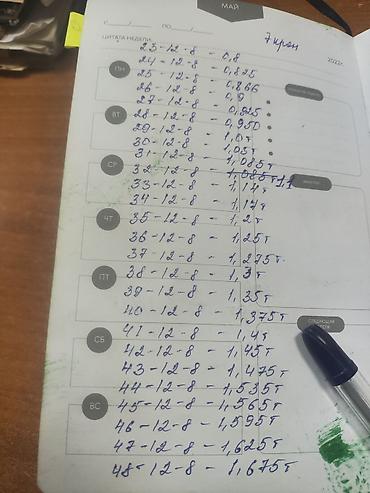 МАЙ
С / / ПО / /
ЦИТАТА НЕДЕЛИ:
7 кран
2022г.
23-12-8 - 0,8
24-12-8 - 0,825
ПН
25-12-8 - 0,866
26-12-8 - 0,9
27-12-8 - 0,925
ВТ
28-12-8 - 0,950
29-12-8 - 1,0т
30-12-8 - 1,05т
31-12-8 - 1,085т
СР
32-12-8 - 1,085т 1,1
33-12-8 - 1,14т
34-12-8 - 1,17т
ЧТ
35-12-8 - 1,2т
36-12-8 - 1,25т
37-12-8 - 1,275т
ПТ
38-12-8 - 1,3т
39-12-8 - 1,35т
40-12-8 - 1,375т
СЛЕДУЮЩАЯ
41-12-8 - 1,4т
СБ
42-12-8 - 1,45т
43-12-8 - 1,475т
44-12-8 - 1,535т
ВС
45-12-8 - 1,565т
46-12-8 - 1,595т
47-12-8 - 1,625т
48-12-8 - 1,675т